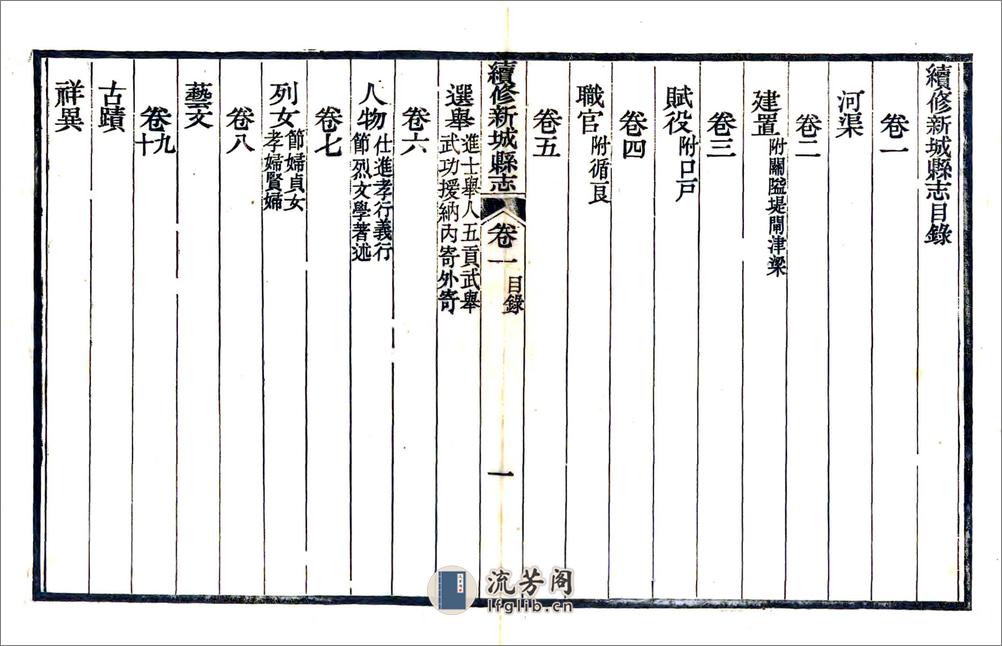 續修新城縣志目錄
卷一
河渠
卷二
建置
附關隘堤閘津梁
卷三
賦役
附口戸
卷四
職官
附循良
卷五
續修新城縣志
卷一
目錄
一
選舉
進士舉人五貢武舉
武功援納內寄外寄
卷六
人物
仕進孝行義行
節烈文學著述
卷七
列女
節婦貞女
孝婦賢婦
卷八
藝文
卷九
十
古蹟
祥異
流芳阁
lfglib.cn